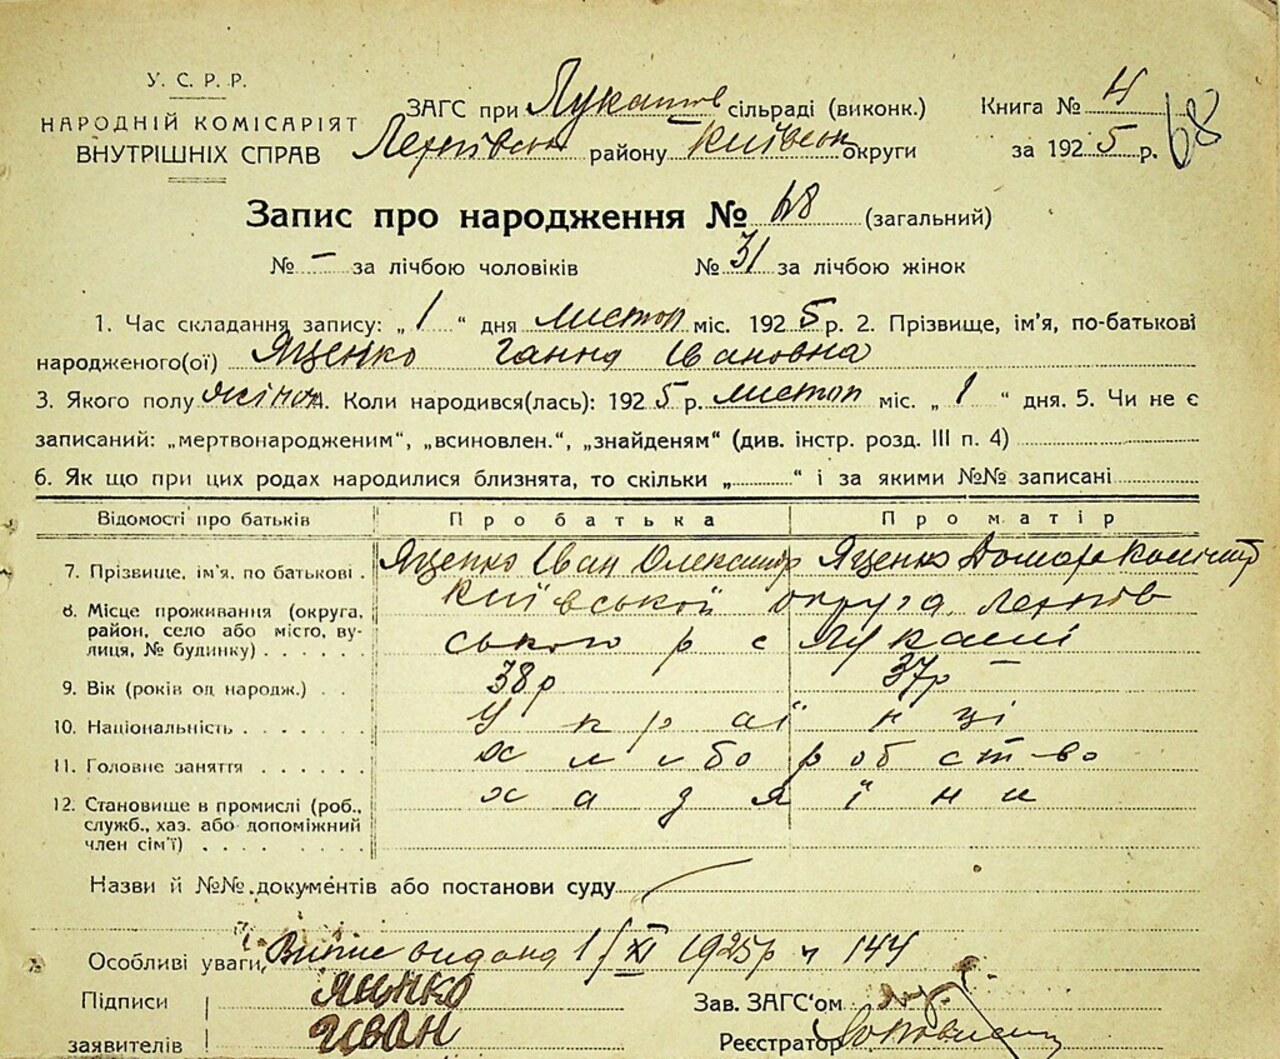 У. С. Р. Р.
НАРОДНІЙ КОМІСАРІЯТ
ВНУТРІШНІХ СПРАВ
ЗАГС при Лукашів сільраді (виконк.)
району Київськ округи
Книга № 4
за 1925 р.
68
Запис про народження № 68 (загальний)
№ – за лічбою чоловіків № 31 за лічбою жінок
1. Час складання запису: „ 1 “ дня листоп міс. 1925 р. 2. Прізвище, ім'я, по-батькові
народженого(ої) Яценко Ганна Івановна
3. Якого полу жіноч 4. Коли народився(лась): 1925 р. листоп міс. „ 1 “ дня. 5. Чи не є
записаний: „мертвонародженим“, „всиновлен.“, „знайденям“ (див. інстр. розд. III п. 4)
6. Як що при цих родах народилися близнята, то скільки „ “ і за якими №№ записані
Відомості про батьків Про батька Про матір
7. Прізвище, ім'я, по батькові . Яценко Іван Олександр Яценко Домара
8. Місце проживання (округа, район, село або місто, вулиця, № будинку) . . . . . . Київської округа
ського р с Лукаші
9. Вік (років од народж.) . . 38 р 37 р
10. Національність . . . . . . . українці
11. Головне заняття . . . . . . хлиборобство
12. Становище в промислі (роб., служб., хаз. або допоміжний член сім'ї) . . . . . . . хадяїни
Назви й №№ документів або постанови суду
Особливі уваги, Випис видана 1/XI 1925р ч 144
Підписи заявителів Яцнко
Іван
Зав. ЗАГС'ом
Реєстратор